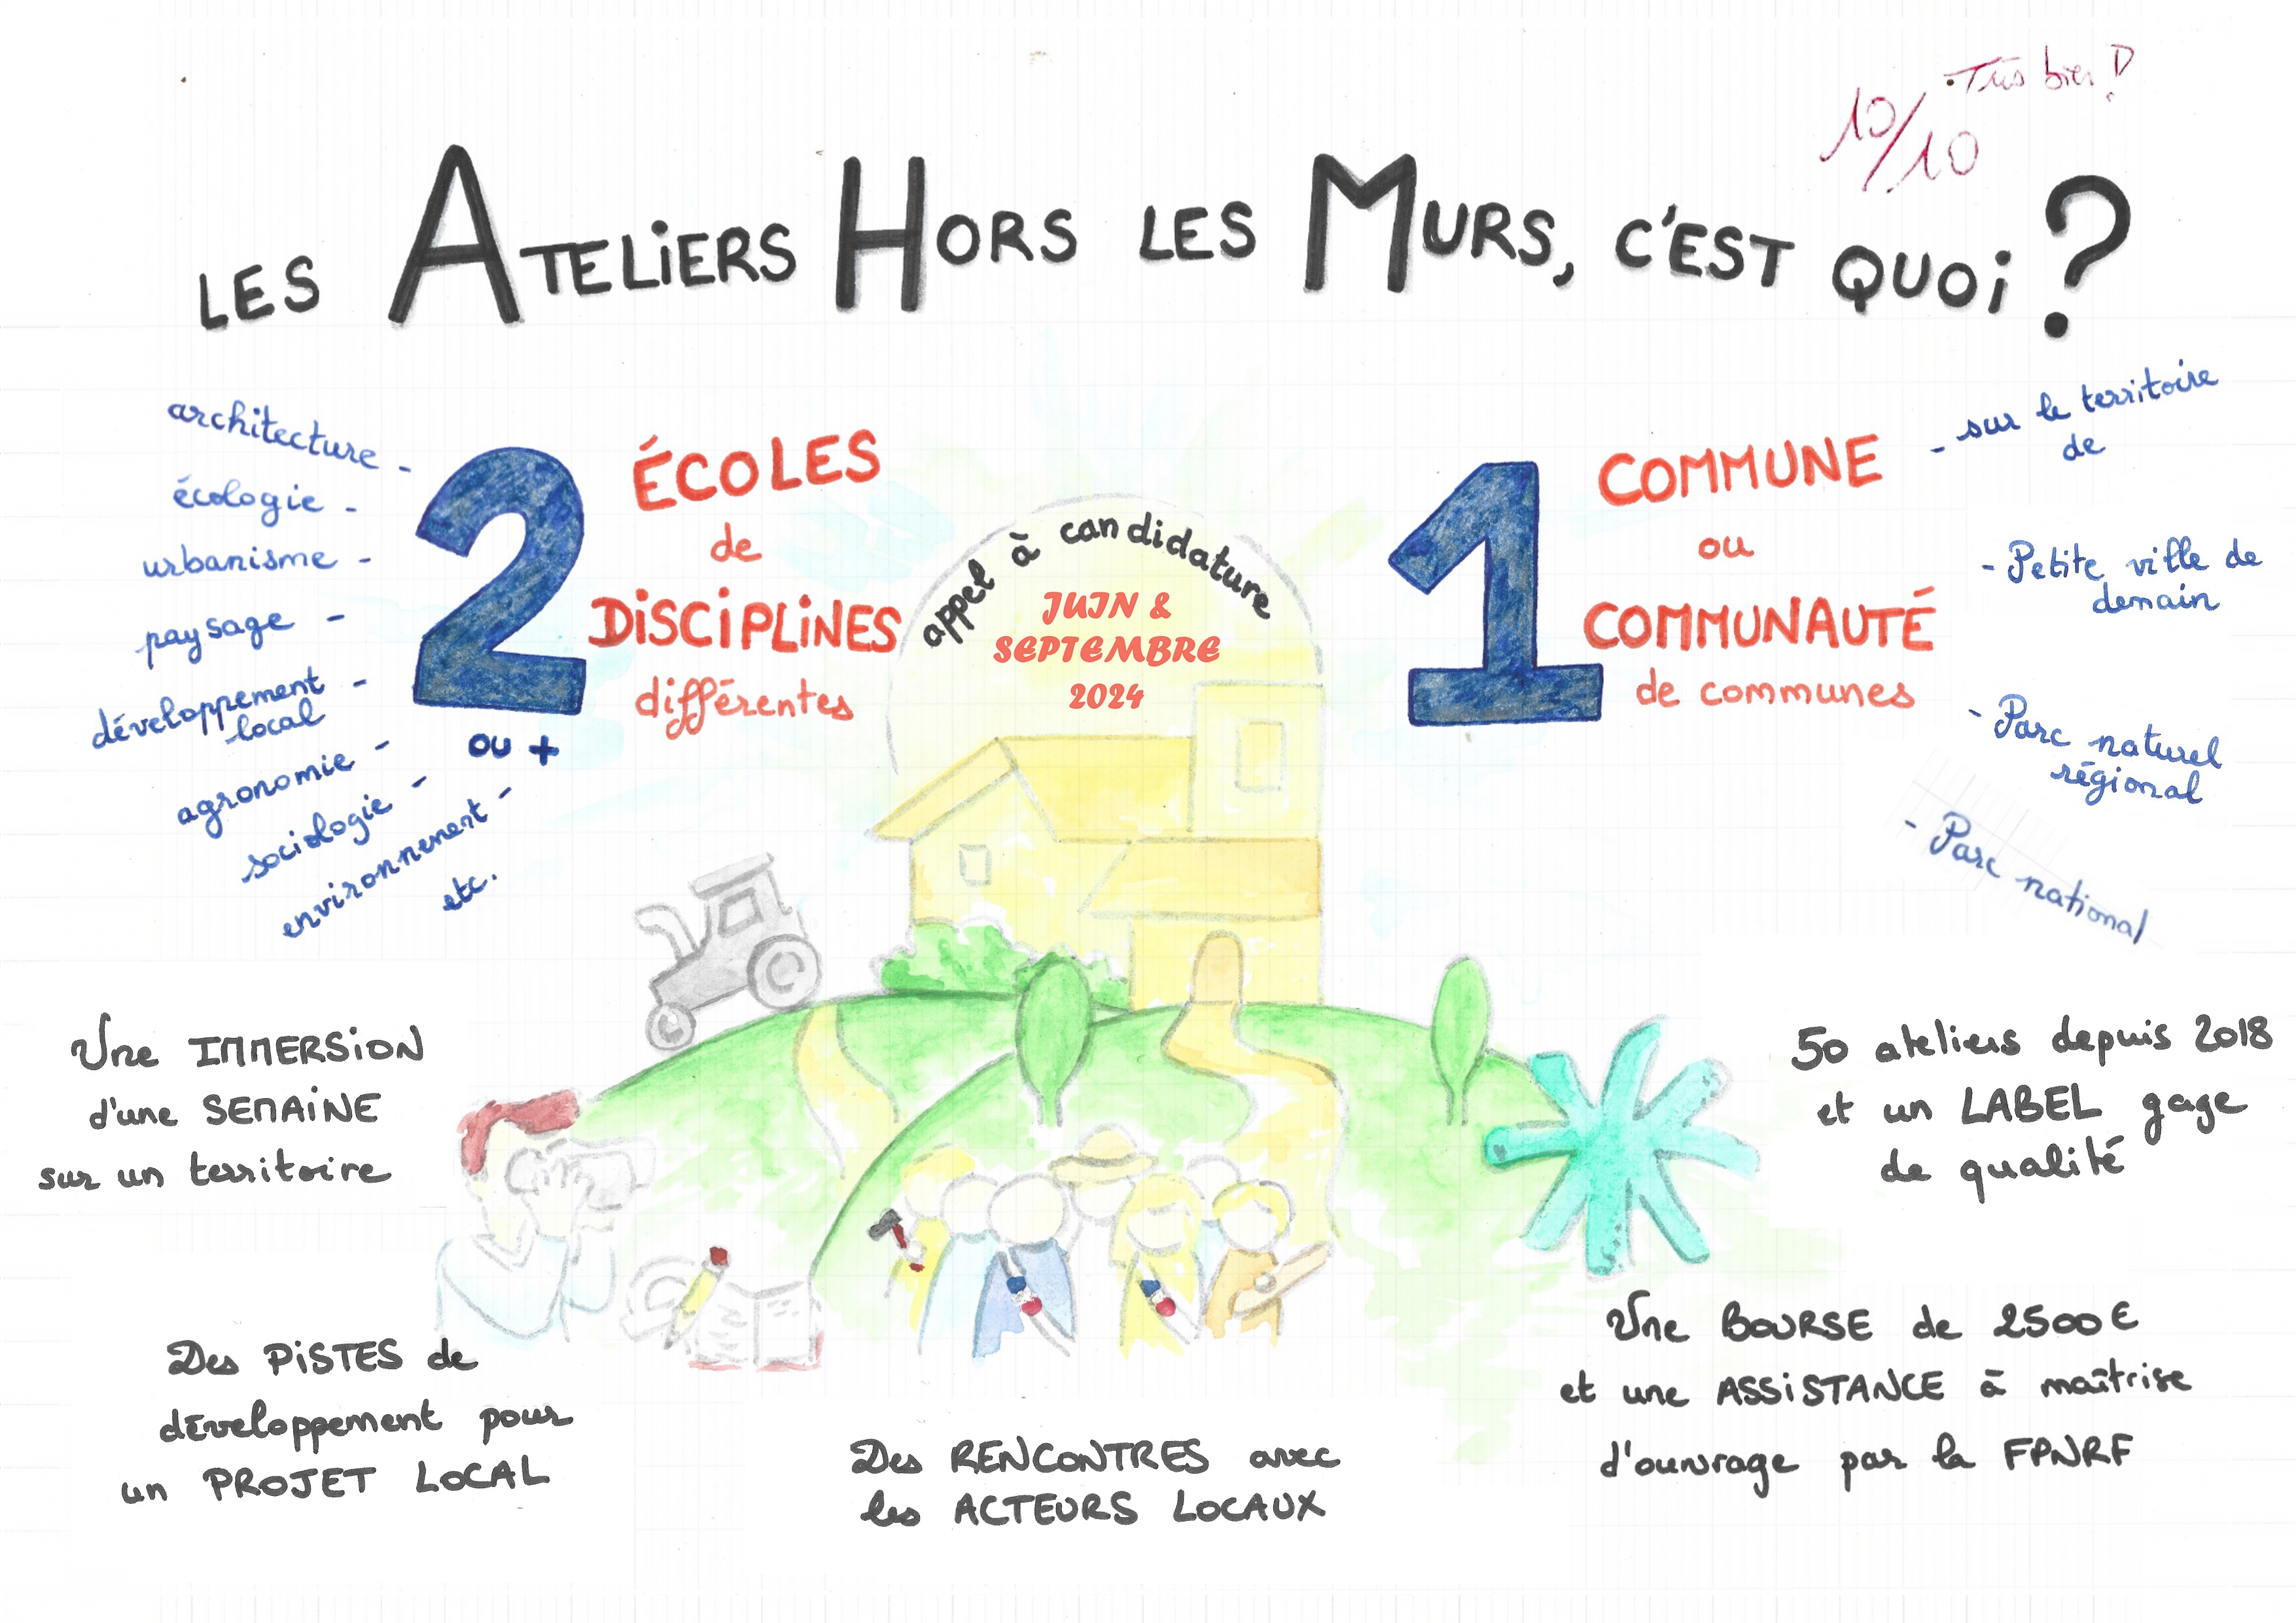 Très bien !
10/10
LES ATELIERS HORS LES MURS, C'EST QUOI ?
architecture -
écologie -
urbanisme -
paysage -
développement -
local
agronomie -
sociologie -
environnement -
etc.
2
ou +
ÉCOLES
de
DISCIPLINES
différentes
appel à candidature
JUIN &
SEPTEMBRE
2024
1
COMMUNE
ou
COMMUNAUTÉ
de communes
- sur le territoire
de
- Petite ville de
demain
- Parc naturel
régional
- Parc national
Une IMMERSION
d'une SEMAINE
sur un territoire
50 ateliers depuis 2018
et un LABEL gage
de qualité
Des PISTES de
développement pour
un PROJET LOCAL
Des RENCONTRES avec
les ACTEURS LOCAUX
Une BOURSE de 2500€
et une ASSISTANCE à maîtrise
d'ouvrage par la FPNRF